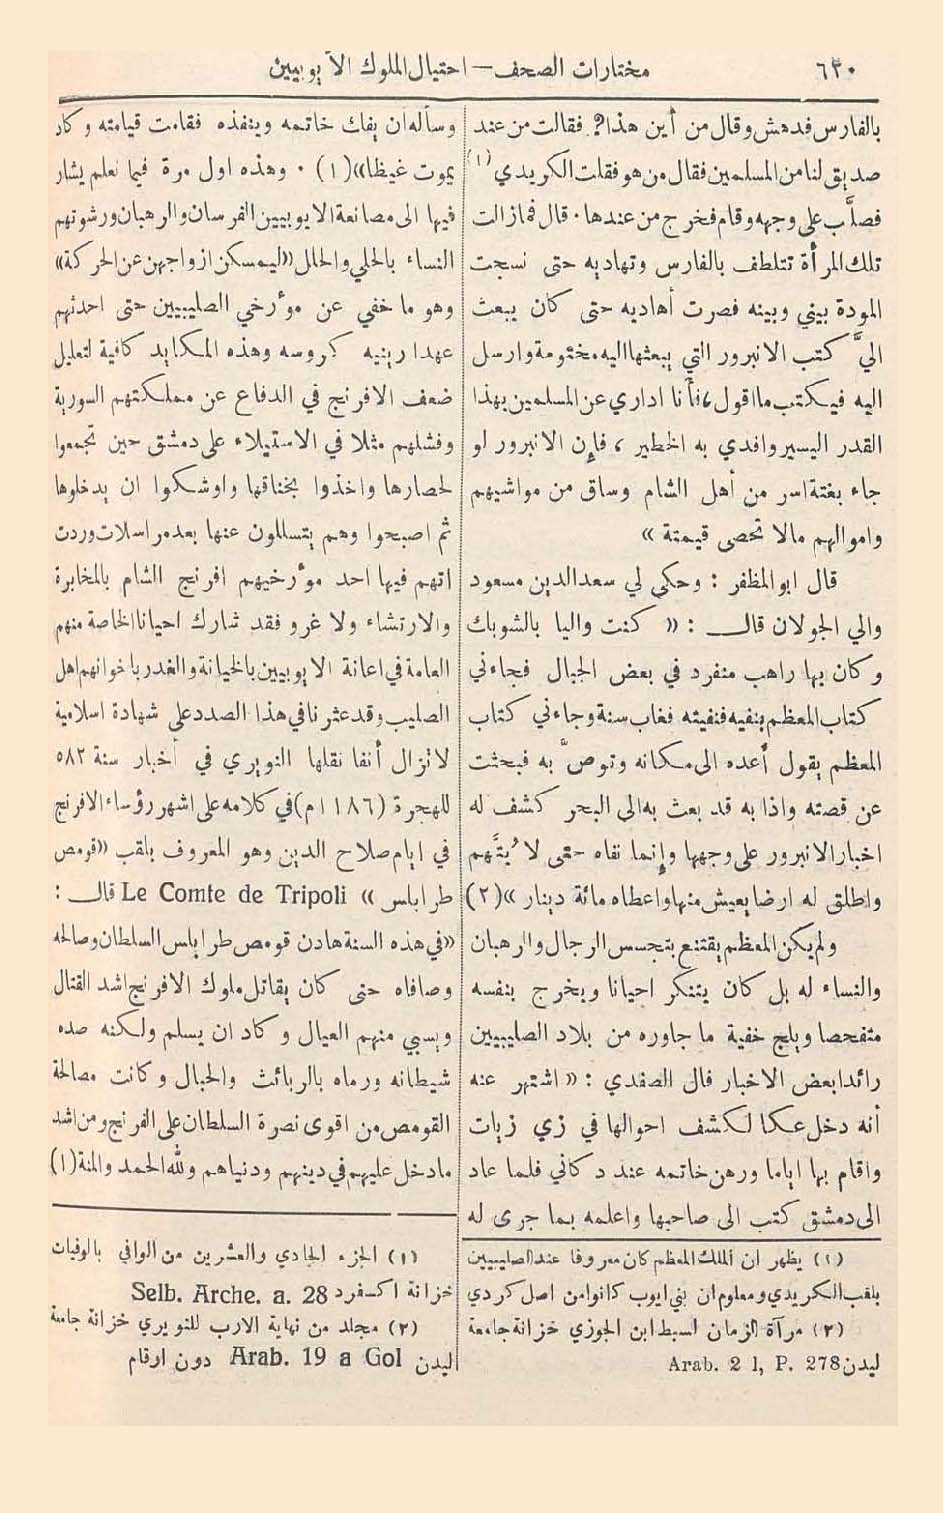 ٦٣٠
مختارات الصحف — احتيال الملوك الايوبيين
بالفارس فدهش وقال من أين هذا؟ فقالت من عند
صديق لنا من المسلمين فقال من هو فقلت الكريدي (١)
فصلَّب على وجهه وقام فخرج من عندها ٠ قال فمازالت
تلك المرأة تتلطف بالفارس وتهاديه حتى نسجت
المودة بيني وبينه فصرت أهاديه حتى كان يبعث
اليَّ كتب الانبرور التي يبعثها اليه مختومة وارسل
اليه فيكتب ما اقول ، فأنا اداري عن المسلمين بهذا
القدر اليسير وافدي به الخطير ، فإن الانبرور لو
جاء بغتة اسر من أهل الشام وساق من مواشيهم
واموالهم مالا تحصى قيمتة »
قال ابو المظفر : وحكى لي سعد الدين مسعود
والي الجولان قال : « كنت واليا بالشوبك
وكان بها راهب منفرد في بعض الجبال فجاءني
كتاب المعظم بنفيه فنفيته فغاب سنة وجاءني كتاب
المعظم يقول أعده الى مكانه وتوصَّ به فبحثت
عن قصته واذا به قد بعث به الى البحر كشف له
اخبار الانبرور على وجهها وإنما نفاه حتى لا يُتَّهم
واطلق له ارضا يعيش منها واعطاه مائة دينار » (٢)
ولم يكن المعظم يقتنع بتجسس الرجال والرهبان
والنساء له بل كان يتنكر احيانا ويخرج بنفسه
متفحصا ويلج خفية ما جاوره من بلاد الصليبيين
رائدا بعض الاخبار قال الصفدي : « اشتهر عنه
أنه دخل عكا لكشف احوالها في زي زيات
واقام بها اياما ورهن خاتمه عند دكاني فلما عاد
الى دمشق كتب الى صاحبها واعلمه بما جرى له
(١) يظهر ان الملك المعظم كان معروفا عند الصليبيين
بلقب الكريدي ومعلوم ان بني ايوب كانوا من اصل كردي
(٢) مرآة الزمان لسبط ابن الجوزي خزانة جامعة
ليدن Arab. 2 1, P. 278
وسأله ان يفك خاتمه وينفذه فقامت قيامته وكاد
يموت غيظا » (١) ٠ وهذه اول مرة فيما نعلم يشار
فيها الى مصانعة الايوبيين الفرسان والرهبان ورشوتهم
النساء بالحلي والحلل « ليمسكن ازواجهن عن الحركة »
وهو ما خفي عن مؤرخي الصليبيين حتى احدثهم
عهدا رينيه كروسه وهذه المكايد كافية لتعليل
ضعف الافرنج في الدفاع عن مملكتهم السورية
وفشلهم مثلا في الاستيلاء على دمشق حين تجمعوا
لحصارها واخذوا بخناقها واوشكوا ان يدخلوها
ثم اصبحوا وهم يتسللون عنها بعد مراسلات وردت
اتهم فيها احد مؤرخيهم افرنج الشام بالمخابرة
والارتشاء ولا غرو فقد شارك احيانا الخاصة منهم
العامة في اعانة الايوبيين بالخيانة والغدر باخوانهم اهل
الصليب وقد عثرنا في هذا الصدد على شهادة اسلامية
لاتزال أنفا نقلها النويري في أخبار سنة ٥٨٢
للهجرة (١١٨٦ م) في كلامه على اشهر رؤساء الافرنج
في ايام صلاح الدين وهو المعروف بلقب « قومص
طرابلس » Le Comte de Tripoli قال :
« في هذه السنة هادن قومص طرابلس السلطان وصالحه
وصافاه حتى كان يقاتل ملوك الافرنج اشد القتال
ويسبي منهم العيال وكاد ان يسلم ولكنه صده
شيطانه ورماه بالربائث والخبال وكانت مصالحة
القومص من اقوى نصرة السلطان على الفرنج ومن اشد
مادخل عليهم في دينهم ودنياهم ولله الحمد والمنة (١)
(١) الجزء الحادي والعشرين من الوافي بالوفيات
خزانة اكسفرد Selb. Arche. a. 28
(٢) مجلد من نهاية الارب للنويري خزانة جامعة
ليدن Arab. 19 a Gol دون ارقام